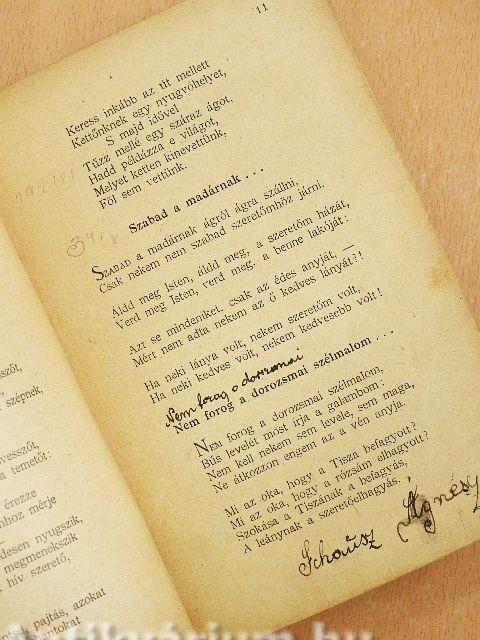 11
Keress inkább az út mellett
Kettőnknek egy nyugvóhelyet,
S majd idővel
Tűzz mellé egy száraz ágot,
Hadd példázza e világot,
Melyet ketten kinevettünk,
Föl sem vettünk.
Szabad a madárnak . . .
Szabad a madárnak ágról ágra szállni,
Csak nekem nem szabad szeretőmhöz járni.
Áldd meg Isten, áldd meg, a szeretőm házát,
Verd meg Isten, verd meg, a benne lakóját:
Azt se mindeniket, csak az édes anyját, —
Mért nem adta nekem az ő kedves lányát?!
Ha neki lánya volt, nekem szeretőm volt,
Ha neki kedves volt, nekem kedvesebb volt!
Nem forog a dorozsmai
Nem forog a dorozsmai szélmalom . . .
Nem forog a dorozsmai szélmalom,
Bús levelét most írja a galambom:
Nem kell nekem sem levele, sem maga,
Ne átkozzon engem az a vén anyja.
Mi az oka, hogy a Tisza befagyott?
Mi az oka, hogy a rózsám elhagyott?
Szokása a Tiszának a befagyás,
A leánynak a szeretőelhagyás.
Schausz Ágnes
szépnek,
vesszőt,
a temetőt:
érezze
mérje
nyugszik,
megmenekszik
hív szerető,
pajtás, azokat